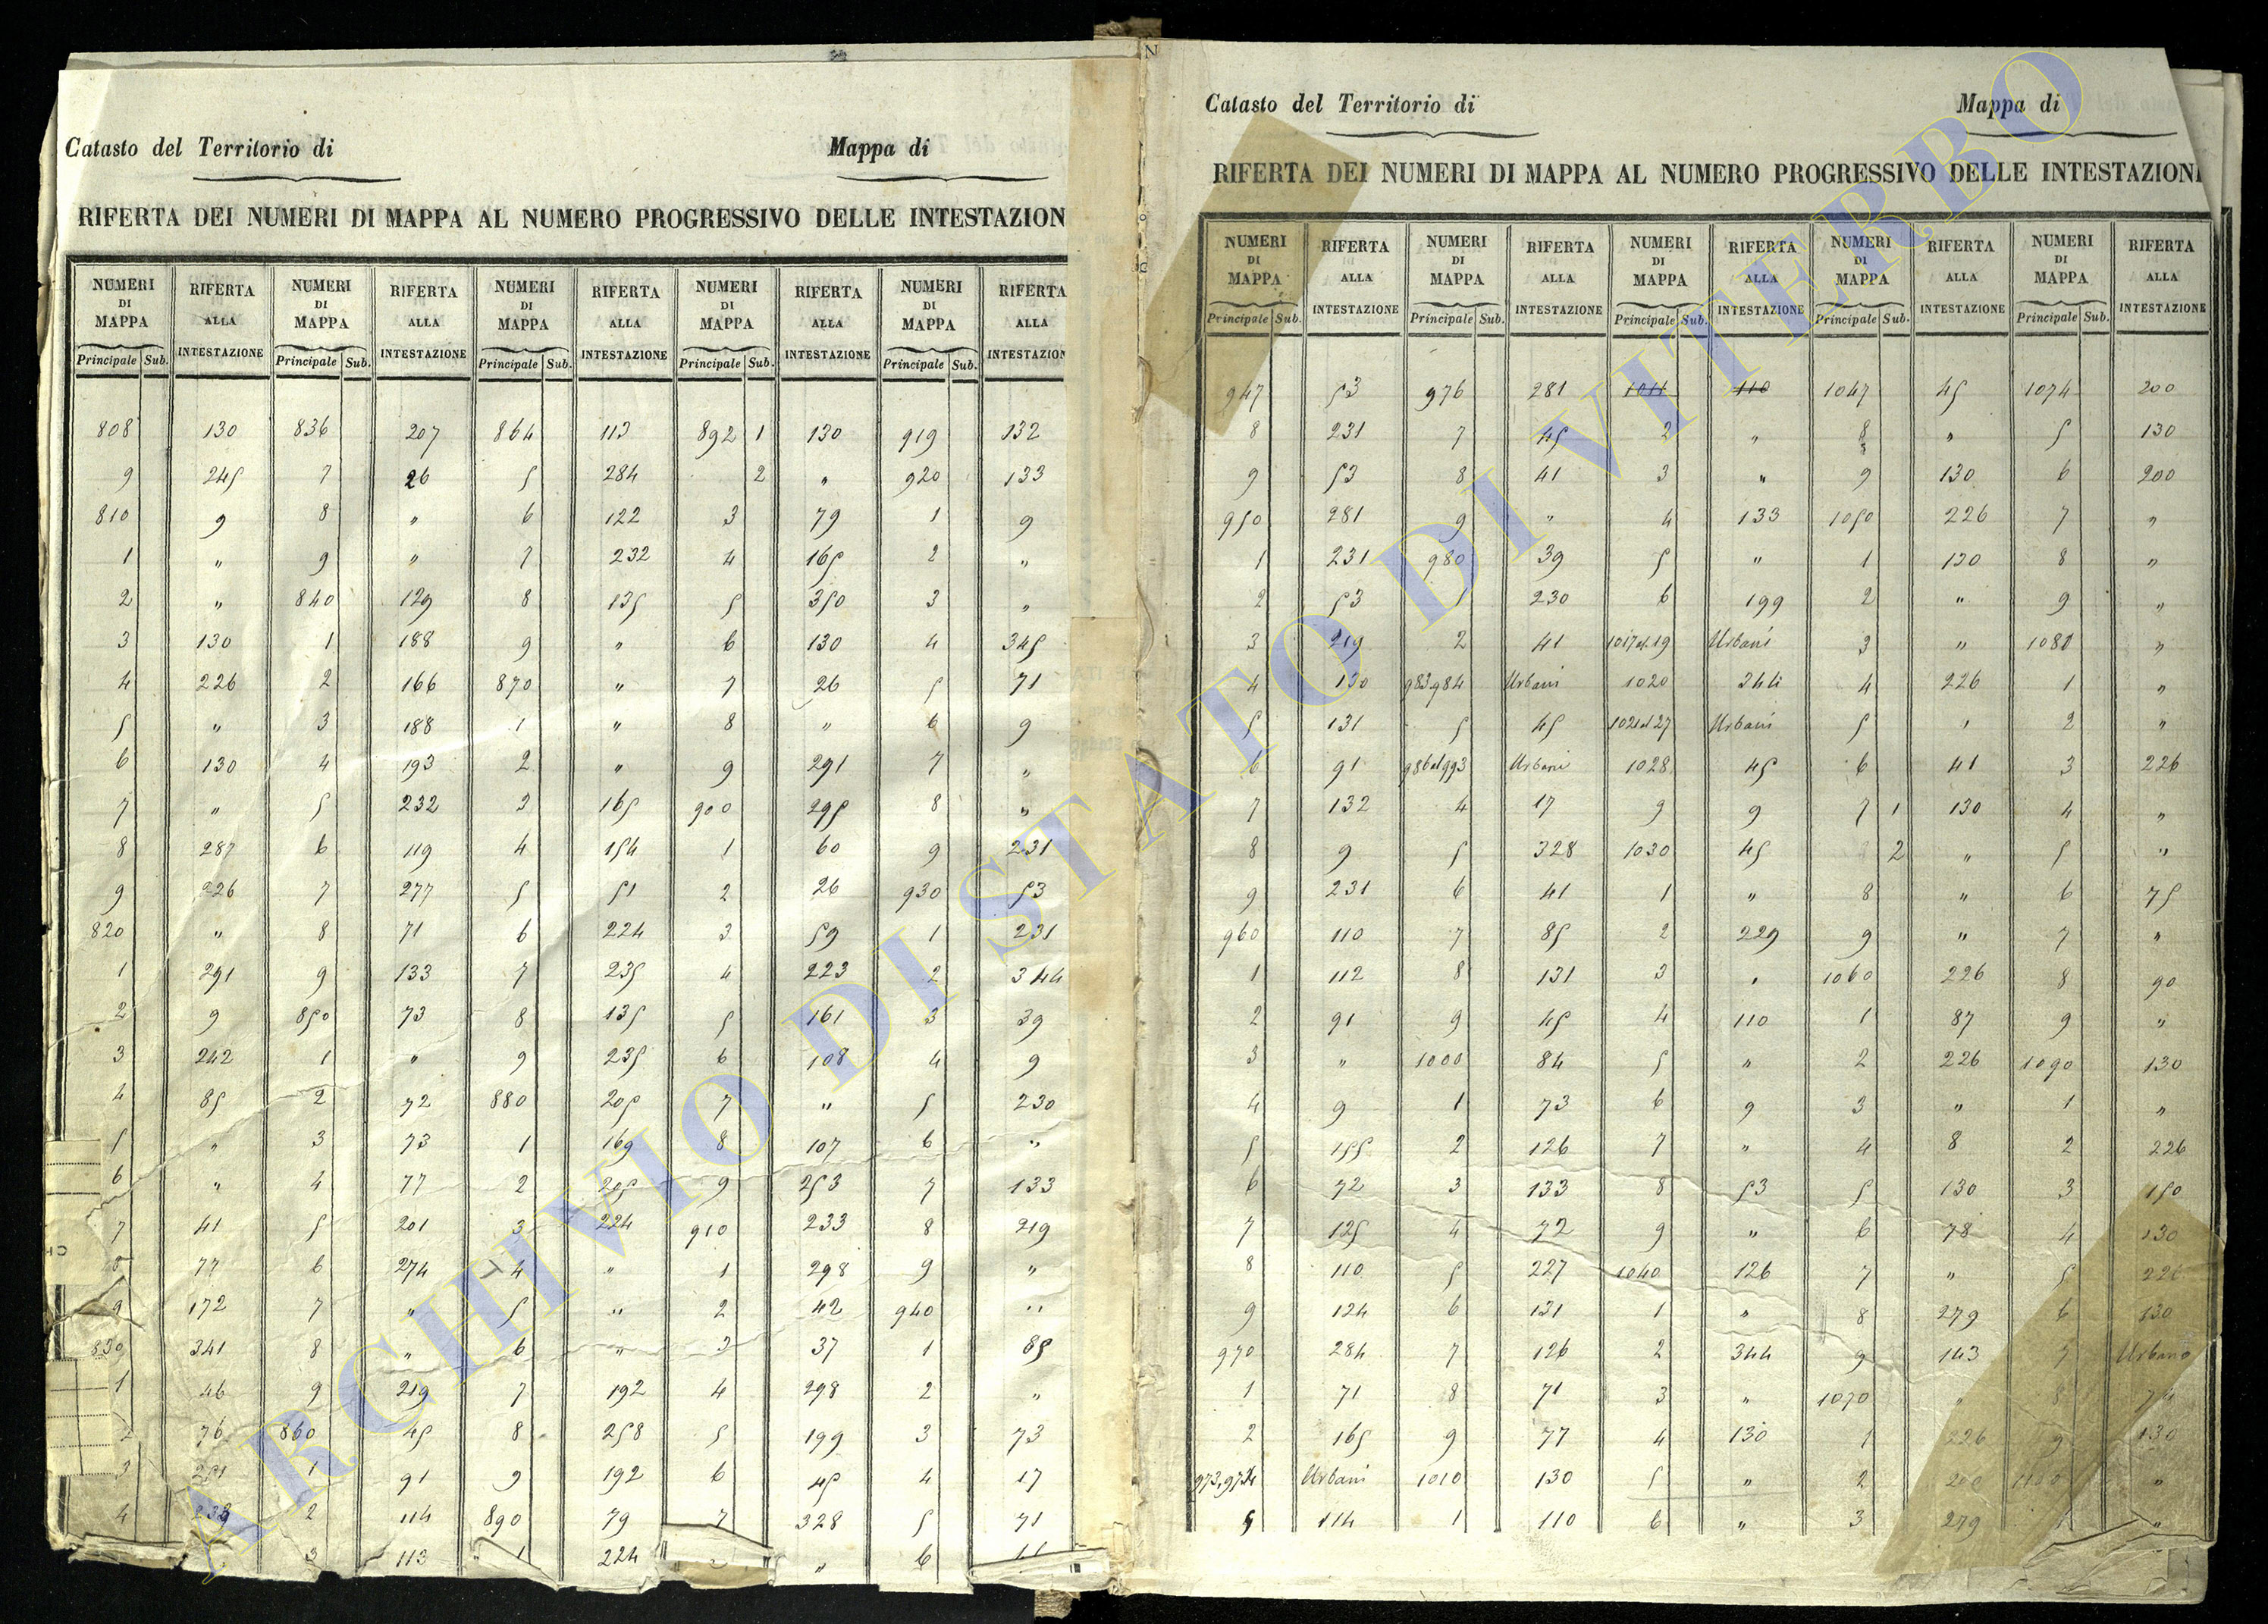 Catasto del Territorio di Mappa di
RIFERTA DEI NUMERI DI MAPPA AL NUMERO PROGRESSIVO DELLE INTESTAZION
NUMERI DI MAPPA RIFERTA ALLA INTESTAZIONE NUMERI DI MAPPA RIFERTA ALLA INTESTAZIONE NUMERI DI MAPPA RIFERTA ALLA INTESTAZIONE NUMERI DI MAPPA RIFERTA ALLA INTESTAZIONE NUMERI DI MAPPA RIFERTA ALLA INTESTAZION
Principale Sub. Principale Sub. Principale Sub. Principale Sub. Principale Sub.
808 130 836 207 864 113 892 1 130 919 132
9 245 7 26 5 284 2 " 920 133
810 9 8 " 6 122 3 79 1 9
1 " 9 " 7 232 4 165 2 "
2 " 840 129 8 135 5 350 3 "
3 130 1 188 9 " 6 130 4 345
4 226 2 166 870 " 7 26 5 71
5 " 3 188 1 " 8 " 6 9
6 130 4 193 2 " 9 291 7 "
7 " 5 232 3 165 900 295 8 "
8 287 6 119 4 154 1 60 9 231
9 226 7 277 5 51 2 26 930 53
820 " 8 71 6 224 3 59 1 231
1 291 9 133 7 235 4 223 2 344
2 9 850 73 8 135 5 161 3 39
3 242 1 " 9 235 6 108 4 9
4 85 2 72 880 205 7 " 5 230
5 " 3 73 1 169 8 107 6 "
6 " 4 77 2 205 9 253 7 133
7 41 5 201 3 224 910 233 8 219
8 77 6 274 4 " 1 298 9 "
9 172 7 " 5 " 2 42 940 "
830 341 8 " 6 " 3 37 1 65
1 46 9 219 7 192 4 298 2 "
2 76 860 45 8 258 5 199 3 73
3 1 91 9 192 6 45 4 17
4 2 114 890 79 7 328 5 71
3 113 1 224 " 6
Catasto del Territorio di Mappa di
RIFERTA DEI NUMERI DI MAPPA AL NUMERO PROGRESSIVO DELLE INTESTAZIONI
NUMERI DI MAPPA RIFERTA ALLA INTESTAZIONE NUMERI DI MAPPA RIFERTA ALLA INTESTAZIONE NUMERI DI MAPPA RIFERTA ALLA INTESTAZIONE NUMERI DI MAPPA RIFERTA ALLA INTESTAZIONE NUMERI DI MAPPA RIFERTA ALLA INTESTAZIONE
Principale Sub. Principale Sub. Principale Sub. Principale Sub. Principale Sub.
947 53 976 281 1011 110 1047 45 1074 200
8 231 7 45 2 " 8 " 5 130
9 53 8 41 3 " 9 130 6 200
950 281 9 " 4 133 1050 226 7 "
1 231 980 39 5 " 1 130 8 "
2 53 1 230 6 199 2 " 9 "
3 219 2 41 1017 al 19 Urbani 3 " 1080 "
4 130 983.984 Urbani 1020 344 4 226 1 "
5 131 5 45 1021 al 27 Urbani 5 " 2 "
6 91 986 al 993 Urbani 1028 45 6 41 3 226
7 132 4 17 9 9 7 1 130 4 "
8 9 5 328 1030 45 2 " 5 "
9 231 6 41 1 " 8 " 6 75
960 110 7 85 2 229 9 " 7 "
1 112 8 131 3 " 1060 226 8 90
2 91 9 45 4 110 1 87 9 "
3 " 1000 84 5 " 2 226 1090 130
4 9 1 73 6 9 3 " 1 "
5 155 2 126 7 " 4 8 2 226
6 72 3 133 8 53 5 130 3 150
7 125 4 72 9 " 6 78 4 130
8 110 5 227 1040 126 7 " 5 226
9 124 6 131 1 " 8 279 6 130
970 284 7 126 2 344 9 143 7 Urbano
1 71 8 71 3 " 1070 " 8 74
2 165 9 77 4 130 1 226 9 130
973.974 Urbani 1010 130 5 " 2 200 1100 "
5 114 1 110 6 " 3 279 1 "
ARCHIVIO DI STATO DI VITERBO